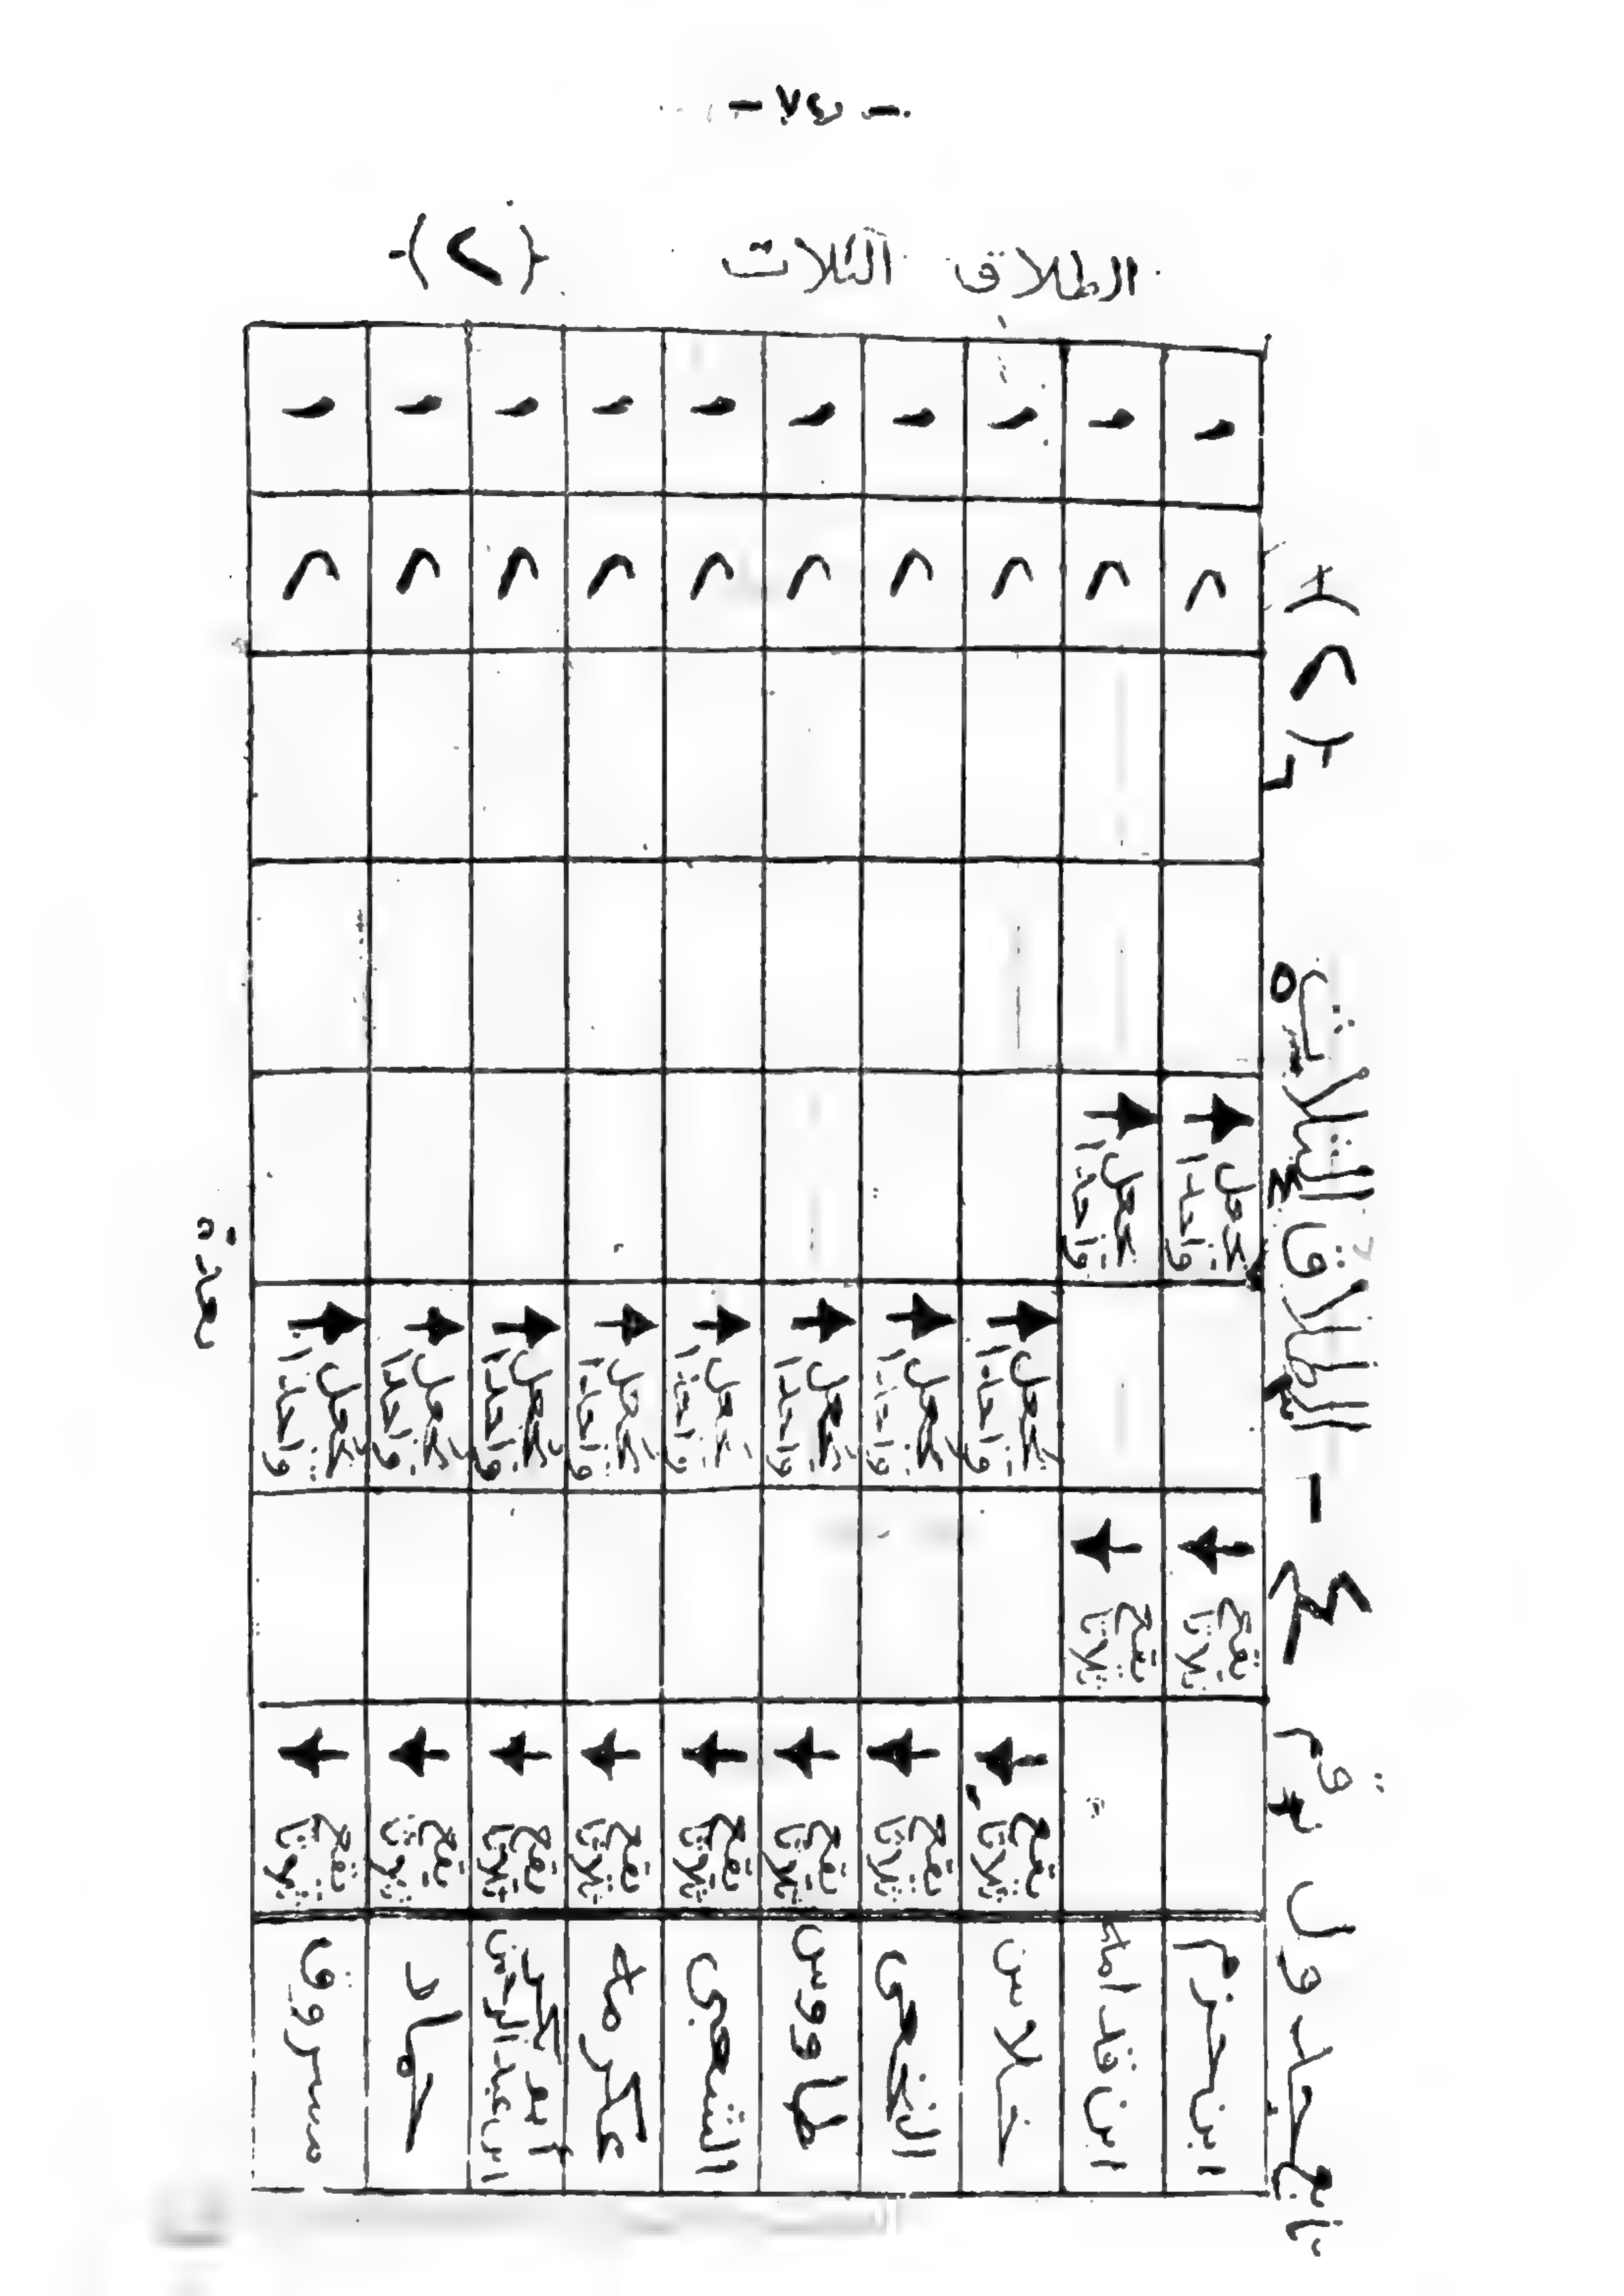 - ٧٤ -
الطلاق الثلاث -(٢)-
تابع جدول رقم ٤ - الطلاق الثلاث -(٢)-
ابن حزم تقع ثلاثا تجعل واحدا ٢ ١
ابن قدامه تقع ثلاثا تجعل واحدا ٢ ١
خلاس تقع ثلاثا تجعل واحدا ٢ ١
النخعى تقع ثلاثا تجعل واحدا ٢ ١
طاووس تقع ثلاثا تجعل واحدا ٢ ١
الشعبى تقع ثلاثا تجعل واحدا ٢ ١
عكرمه تقع ثلاثا تجعل واحدا ٢ ١
أبو بكر ابن عبد الرحمن تقع ثلاثا تجعل واحدا ٢ ١
حماد تقع ثلاثا تجعل واحدا ٢ ١
مسروق تقع ثلاثا تجعل واحدا ٢ ١
بعده